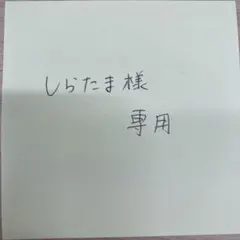 しらたま様
専用